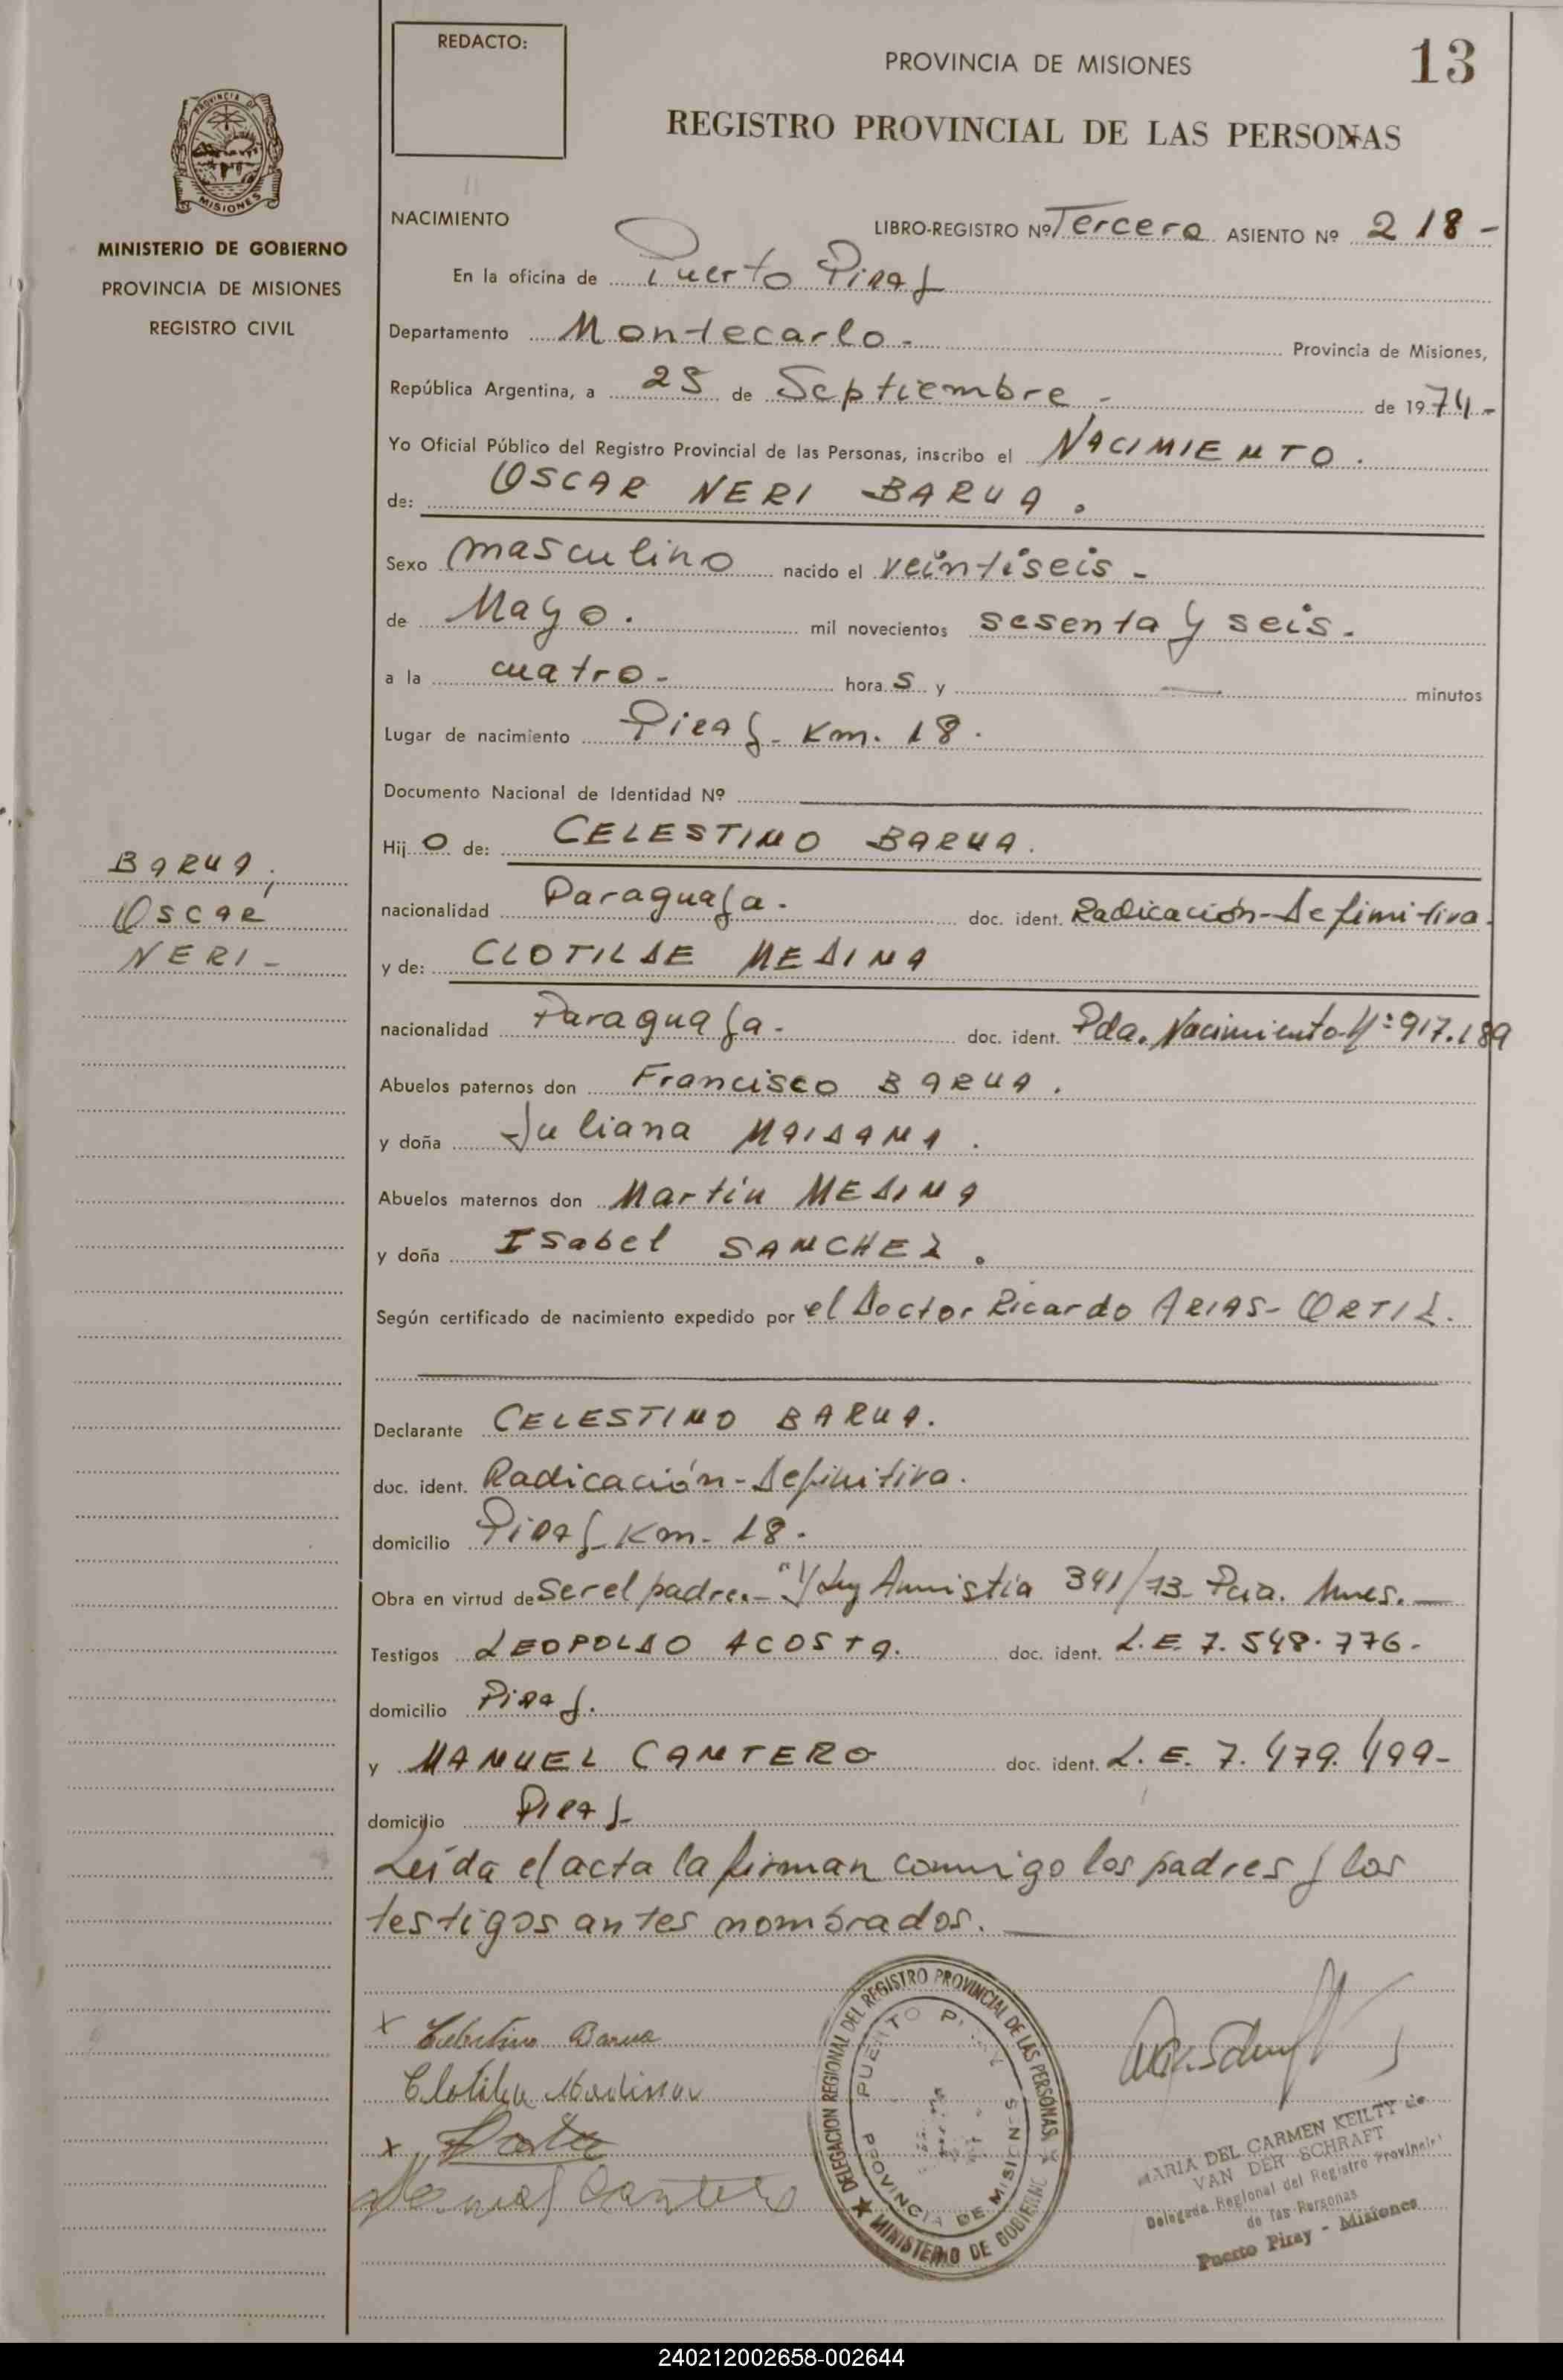 REDACTO:
PROVINCIA DE MISIONES
13
REGISTRO PROVINCIAL DE LAS PERSONAS
PROVINCIA D
MISIONES
MINISTERIO DE GOBIERNO
PROVINCIA DE MISIONES
REGISTRO CIVIL
NACIMIENTO
LIBRO-REGISTRO Nº Tercero ASIENTO Nº 218-
En la oficina de Puerto Piray
Departamento Montecarlo- Provincia de Misiones,
República Argentina, a 25 de Septiembre - de 1974-
Yo Oficial Público del Registro Provincial de las Personas, inscribo el NACIMIENTO.
de: OSCAR NERI BARUA.
Sexo masculino nacido el veintiseis -
de Mayo. mil novecientos sesenta y seis.
a la cuatro- horas y — minutos
Lugar de nacimiento Piray- Km. 18.
Documento Nacional de Identidad Nº
Hijo de: CELESTINO BARUA.
nacionalidad Paraguaya. doc. ident. Radicación-Definitiva.
y de: CLOTILDE MEDINA
nacionalidad Paraguaya- doc. ident. Pda. Nacimiento Nº 917.189
Abuelos paternos don Francisco BARUA.
y doña Juliana MAIDANA.
Abuelos maternos don Martin MEDINA
y doña Isabel SANCHEZ.
Según certificado de nacimiento expedido por el Doctor Ricardo ARIAS- ORTIZ.
BARUA,
Oscar
NERI-
Declarante CELESTINO BARUA.
doc. ident. Radicación-Definitiva.
domicilio Piray Km- 18.
Obra en virtud de Ser el padre.- "y Ley Amnistía 341/73- Pcia. Mnes.—
Testigos LEOPOLDO ACOSTA. doc. ident. L.E. 7.548.776-
domicilio Piray.
y MANUEL CANTERO doc. ident. L.E. 7.479.499-
domicilio Piray
Leída el acta la firman conmigo los padres y los
testigos antes nombrados.
x Celestino Barua
Clotilde Medina
x
Cantero
DELEGACION REGIONAL DEL REGISTRO PROVINCIAL DE LAS PERSONAS
MINISTERIO DE GOBIERNO
PUERTO
PROVINCIA DE MISIONES
MARIA DEL CARMEN KEILTY de
VAN DER SCHRAFT
Delegada Regional del Registro Provincial
de las Personas
Puerto Piray - Misiones
240212002658-002644